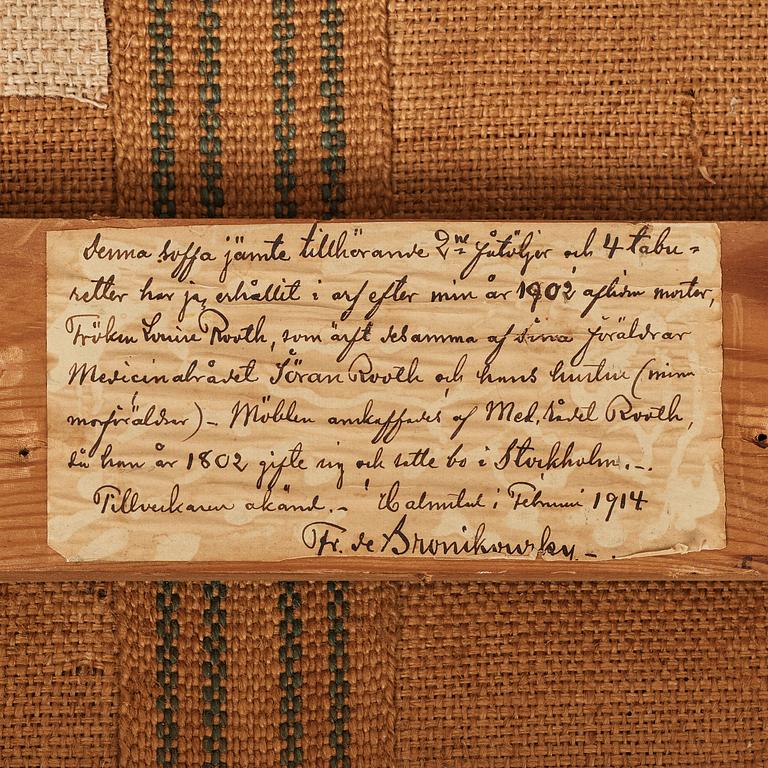 Denna soffa jämte tillhörande 2ne fåtöljer och 4 tabu=
retter har jag erhållit i arf efter min år 1902 aflidna moster,
Fröken Louise Rooth, som ärft desamma af sina föräldrar
Medicinalrådet Göran Rooth och hans hustru (mina
morföräldrar) - Möblen anskaffades af Med. rådet Rooth,
då han år 1802 gifte sig och satte bo i Stockholm. -
Tillverkaren okänd. - Halmstad i Februari 1914
Fr. de Bronikowsky -